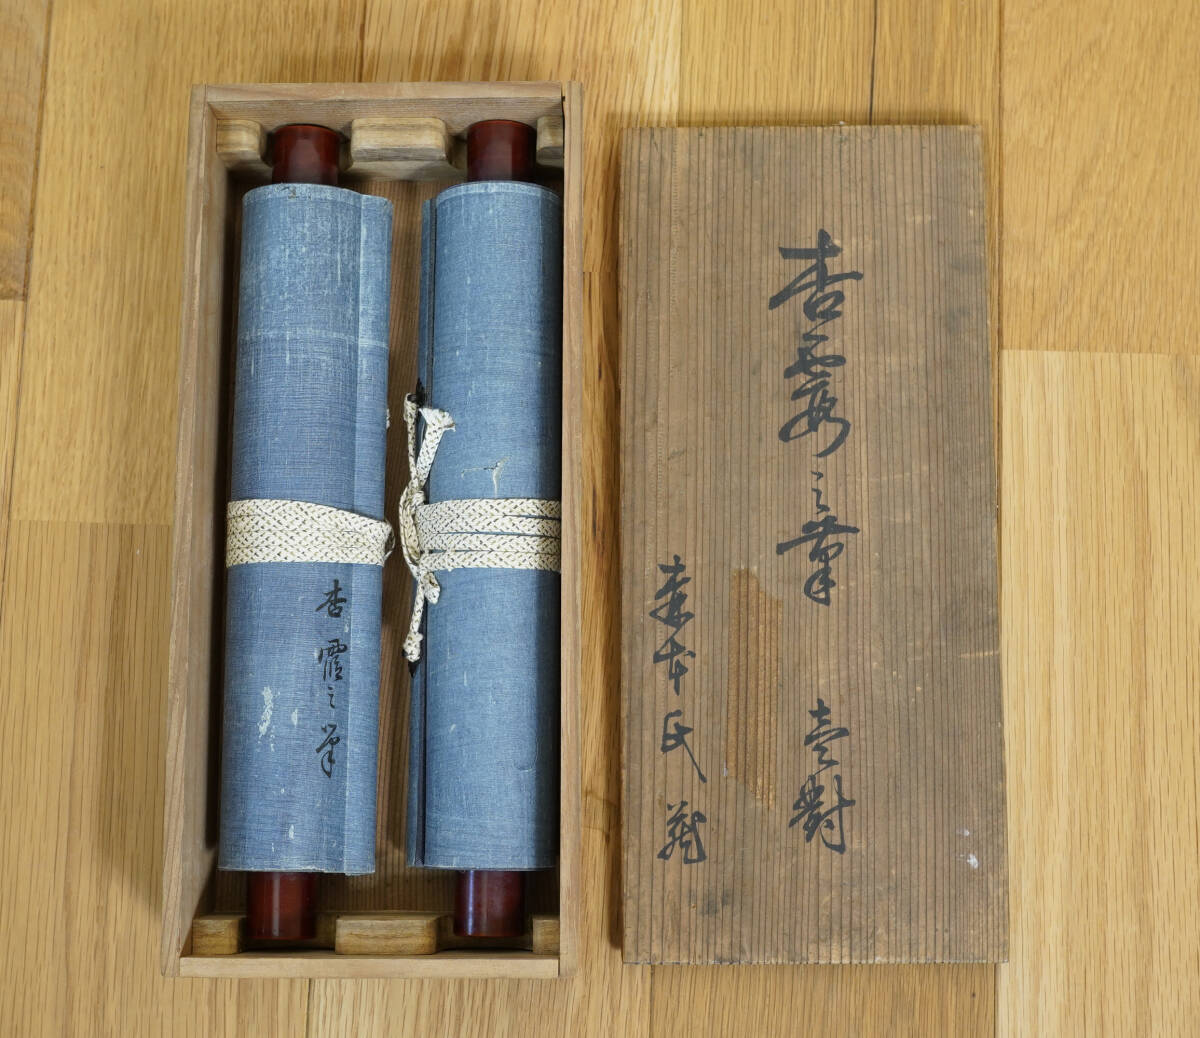 杏霞之筆 壹對
森本氏藏
杏霞之筆